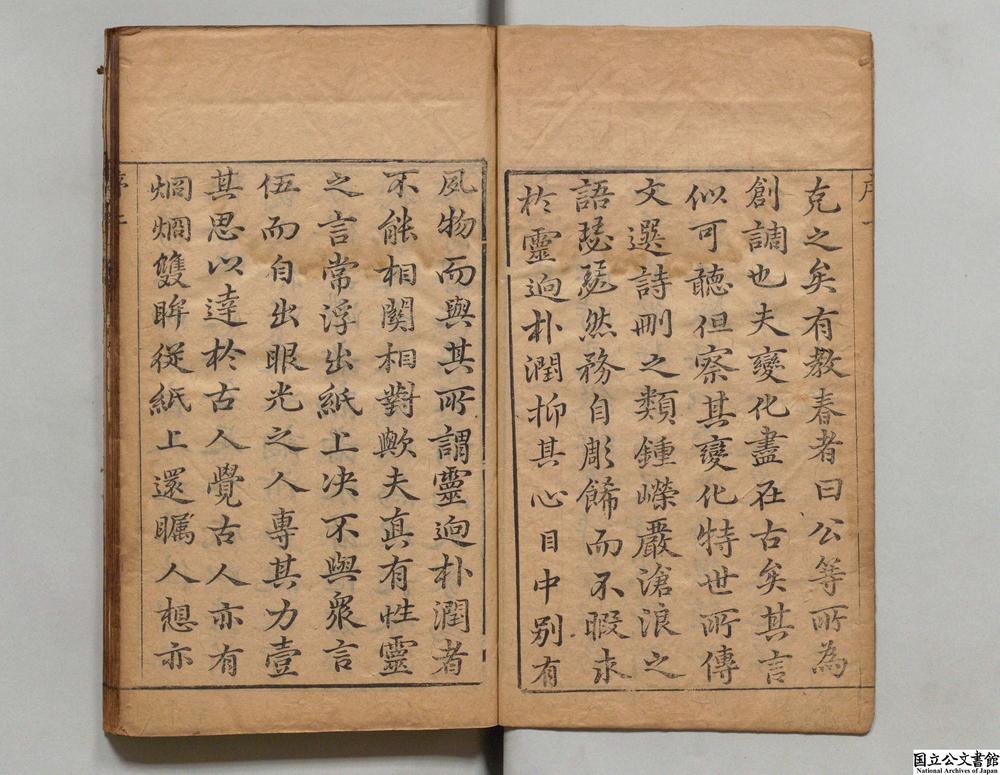 克之矣有教春者曰公等所為
創調也夫變化盡在古矣其言
似可聽但察其變化特世所傳
文選詩刪之類鍾嶸嚴滄浪之
語瑟瑟然務自彫餙而不暇求
於靈逈朴潤抑其心目中別有
風物而與其所謂靈逈朴潤者
不能相關相對歟夫真有性靈
之言常浮出紙上决不與衆言
伍而自出眼光之人專其力壹
其思以達於古人覺古人亦有
烱烱雙眸從紙上還矚人想亦
国立公文書館
National Archives of Japan